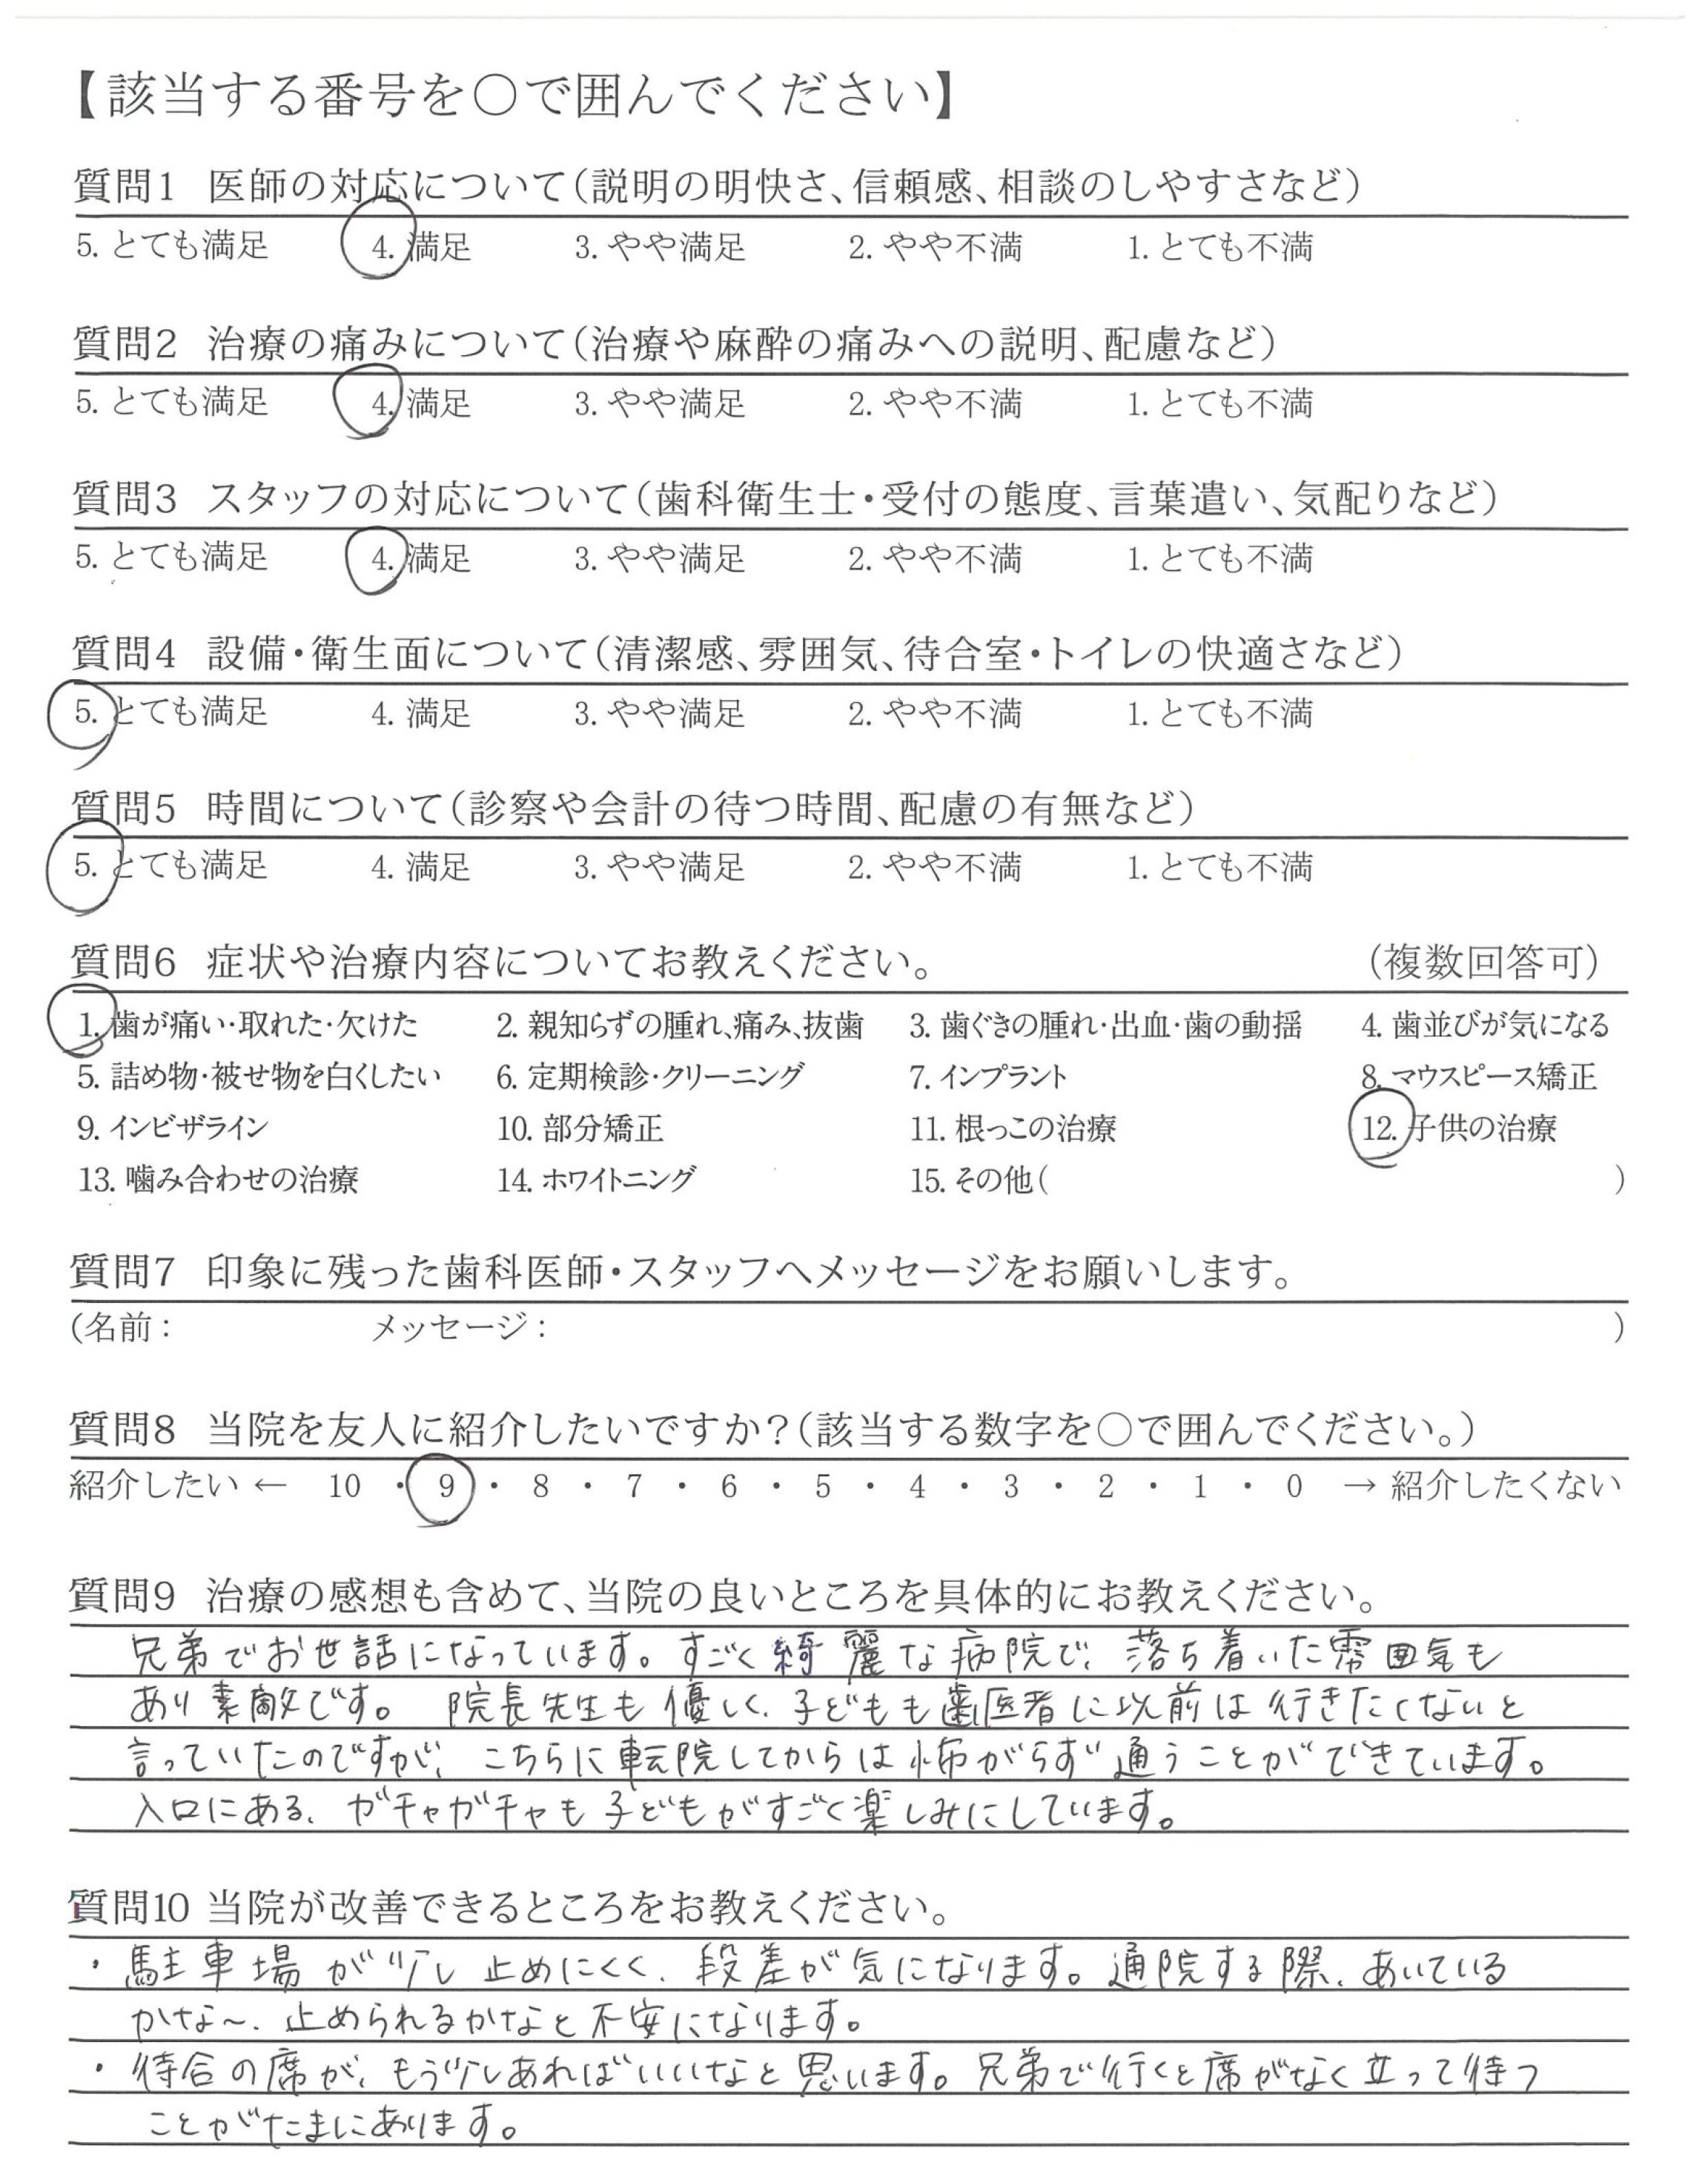 【該当する番号を○で囲んでください】
質問1 医師の対応について(説明の明快さ、信頼感、相談のしやすさなど)
5. とても満足 4. 満足 3. やや満足 2. やや不満 1. とても不満
質問2 治療の痛みについて(治療や麻酔の痛みへの説明、配慮など)
5. とても満足 4. 満足 3. やや満足 2. やや不満 1. とても不満
質問3 スタッフの対応について(歯科衛生士・受付の態度、言葉遣い、気配りなど)
5. とても満足 4. 満足 3. やや満足 2. やや不満 1. とても不満
質問4 設備・衛生面について(清潔感、雰囲気、待合室・トイレの快適さなど)
5. とても満足 4. 満足 3. やや満足 2. やや不満 1. とても不満
質問5 時間について(診察や会計の待つ時間、配慮の有無など)
5. とても満足 4. 満足 3. やや満足 2. やや不満 1. とても不満
質問6 症状や治療内容についてお教えください。 (複数回答可)
1. 歯が痛い・取れた・欠けた 2. 親知らずの腫れ、痛み、抜歯 3. 歯ぐきの腫れ・出血・歯の動揺 4. 歯並びが気になる
5. 詰め物・被せ物を白くしたい 6. 定期検診・クリーニング 7. インプラント 8. マウスピース矯正
9. インビザライン 10. 部分矯正 11. 根っこの治療 12. 子供の治療
13. 噛み合わせの治療 14. ホワイトニング 15. その他( )
質問7 印象に残った歯科医師・スタッフへメッセージをお願いします。
(名前: メッセージ: )
質問8 当院を友人に紹介したいですか?(該当する数字を○で囲んでください。)
紹介したい ← 10 ・ 9 ・ 8 ・ 7 ・ 6 ・ 5 ・ 4 ・ 3 ・ 2 ・ 1 ・ 0 → 紹介したくない
質問9 治療の感想も含めて、当院の良いところを具体的にお教えください。
兄弟でお世話になっています。すごく綺麗な病院で、落ち着いた雰囲気も
あり素敵です。 院長先生も優しく、子どもも歯医者に以前は行きたくないと
言っていたのですが、こちらに転院してからは怖がらず通うことができています。
入口にある、ガチャガチャも子どもがすごく楽しみにしています。
質問10 当院が改善できるところをお教えください。
・駐車場が少し止めにくく、段差が気になります。通院する際、あいている
かな〜、止められるかなと不安になります。
・待合の席が、もう少しあればいいなと思います。兄弟で行くと席がなく立って待つ
ことがたまにあります。